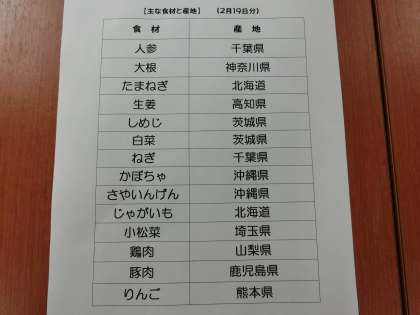 【主な食材と産地】 (2月19日分)
食 材 産 地
人参 千葉県
大根 神奈川県
たまねぎ 北海道
生姜 高知県
しめじ 茨城県
白菜 茨城県
ねぎ 千葉県
かぼちゃ 沖縄県
さやいんげん 沖縄県
じゃがいも 北海道
小松菜 埼玉県
鶏肉 山梨県
豚肉 鹿児島県
りんご 熊本県